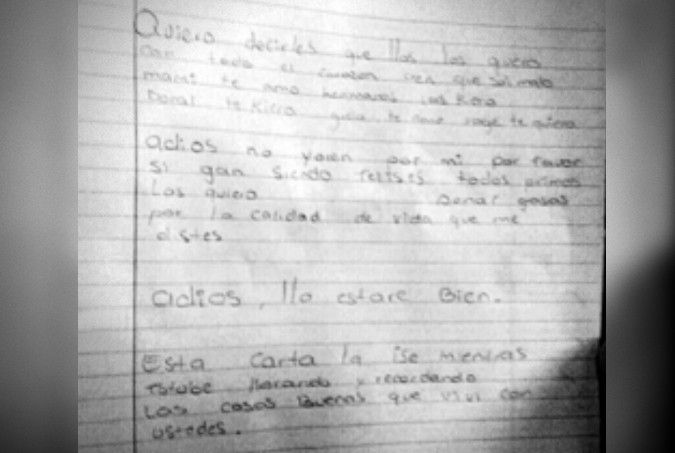 Quiero decirles que llos los quiero
con todo el corazon
mami te amo hermanos los kiero
te kiero te amo te quiero
adios no yoren por mi por favor
si gan siendo felises todos primos
Los quiero
por la calidad de vida que me
distes
adios, llo estare Bien.
Esta carta la ise mientras
estabe llorando y recordando
Las cosas Buenas que vivi con
ustedes.